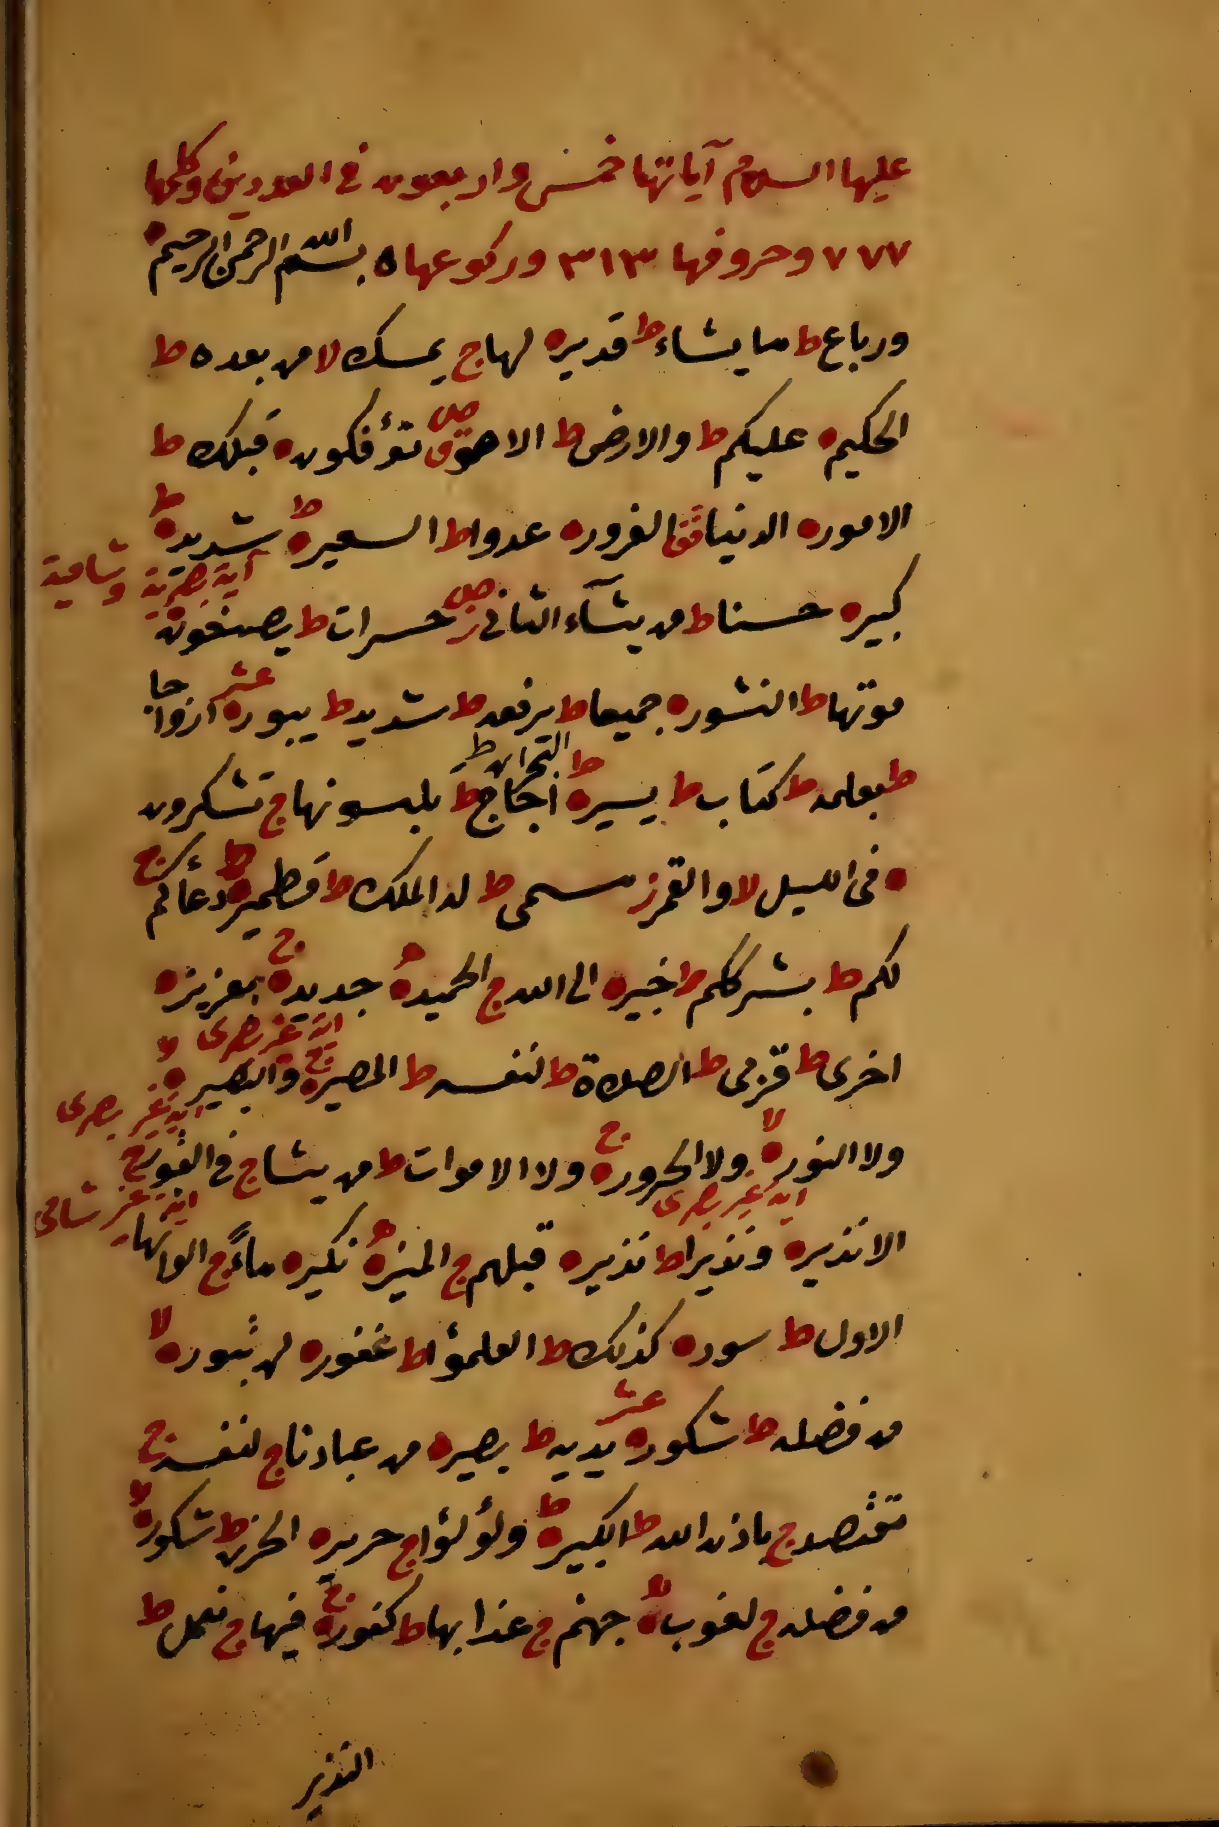 عليها السلام آياتها خمس واربعون في العددين وكلمها
٧٧٧ وحروفها ٣١٣ وركوعها ٥ بسم الله الرحمن الرحيم
ورباع ط ما يشاء ط قدير ه لها ج يمسك لا من بعده ط
الحكيم ه عليكم ط والارض ط الا هو ق صلى تؤفكون ه قبلك ط
الامور ه الدنيا قف الغرور ه عدوا ط السعير ه ط شديد ه ط
آية بصرية وشامية
كبير ه حسنا ط من يشآء الثانى ز صلى حسرات ط يصنعون ه
موتها ط النشور ه جميعا ط يرفعه ط شديد ط يبور ه عشر ازواجا
ط بعلمه ط كتاب ط يسير ه ط البحران ط اجاج ط تلبسونها ج تشكرون
ه فى الليل لا والقمر ز مسمى ط له الملك ط قطمير ه ط دعاكم ج
لكم ط بشرككم ط خبير ه الى الله ج الحميد ه جديد ه ج بعزيز ه
اخرى ط قربى ط الصلاة ط لنفسه ط المصير ه ج والبصير ه لا
اية غير بصرى
اية غير بصرى
ولا النور ه لا ولا الحرور ه ج ولا الاموات ط من يشا ج فى القبور ج
اية غير بصرى
اية غير شامى
الا نذير ه ونذيرا ط نذير ه قبلهم ج المنير ه نكير ه ماءً ج الوانها
الاول ط سود ه كذلك ط العلمؤا ط غفور ه لن تبور ه لا
من فضله ط شكور ه عشر يديه ط بصير ه من عبادنا ج لنفسه ج
مقتصد ج باذن الله ط الكبير ه ط ولؤلؤا ج حرير ه الحزن ط شكور ه لا
من فضله ج لغوب ه جهنم ج عذابها ط كفور ه ج فيها ج نعمل ط
النذير